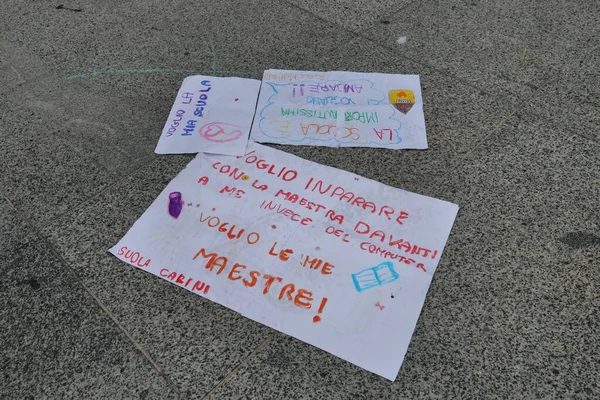 VOGLIO LA
MIA SCUOLA
LA SCUOLA È
IMPORTANTISSIMA
CI VOGLIAMO
ANDARE!!
VOGLIO INPARARE
CON LA MAESTRA DAVANTI
A ME INVECE DEL COMPUTER
VOGLIO LE MIE
MAESTRE!
SUOLA CARINI